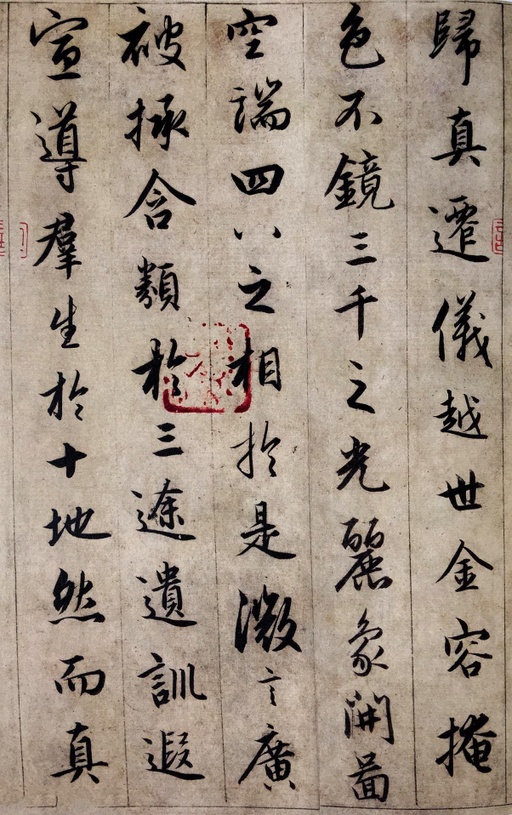 歸真遷儀越世金容掩
色不鏡三千之光麗象開啚
空端四八之相於是微言廣
被拯含類於三途遺訓遐
宣導羣生於十地然而真